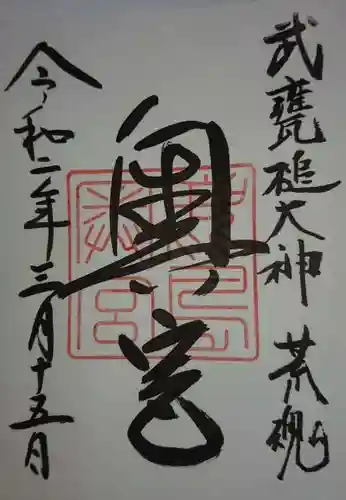 武甕槌大神 荒魂
奥宮
令和二年三月十五月